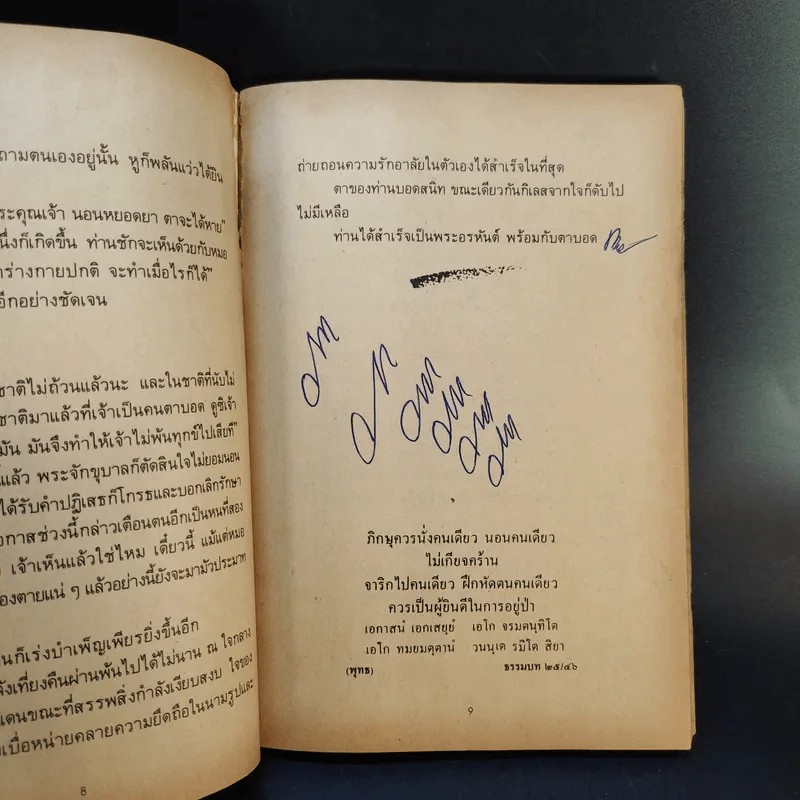 ถามตนเองอยู่นั้น หูก็พลันแว่วได้ยิน
ระคุณเจ้า นอนหยอดยา ตาจะได้หาย"
นึ่งก็เกิดขึ้น ท่านชักจะเห็นด้วยกับหมอ
าร่างกายปกติ จะทำเมื่อไรก็ได้"
อีกอย่างชัดเจน
ชาติไม่ถ้วนแล้วนะ และในชาติที่นับไม่
ชาติมาแล้วที่เจ้าเป็นคนตาบอด ดูซิเจ้า
มัน มันจึงทำให้เจ้าไม่พ้นทุกข์ไปเสียที"
แล้ว พระจักขุบาลก็ตัดสินใจไม่ยอมนอน
ได้รับคำปฏิเสธก็โกรธและบอกเลิกรักษา
อกาสช่วงนี้กล่าวเตือนตนอีกเป็นหนที่สอง
เจ้าเห็นแล้วใช่ไหม เดี๋ยวนี้ แม้แต่หมอ
องตายแน่ ๆ แล้วอย่างนี้ยังจะมามัวประมาท
นก็เร่งบำเพ็ญเพียรยิ่งขึ้นอีก
ังเที่ยงคืนผ่านพ้นไปได้ไม่นาน ณ ใจกลาง
แดนขณะที่สรรพสิ่งกำลังเงียบสงบ ใจของ
เบื่อหน่ายคลายความยึดถือในนามรูปและ
8
ถ่ายถอนความรักอาลัยในตัวเองได้สำเร็จในที่สุด
ตาของท่านบอดสนิท ขณะเดียวกันกิเลสจากใจก็ดับไป
ไม่มีเหลือ
ท่านได้สำเร็จเป็นพระอรหันต์ พร้อมกับตาบอด
ภิกษุควรนั่งคนเดียว นอนคนเดียว
ไม่เกียจคร้าน
จาริกไปคนเดียว ฝึกหัดตนคนเดียว
ควรเป็นผู้ยินดีในการอยู่ป่า
เอกาสนํ เอกเสยฺยํ เอโก จรมตนฺทิโต
เอโก ทมยมตฺตานํ วนนฺเต รมิโต สิยา
(พุทธ) ธรรมบท ๒๕/๔๖
9